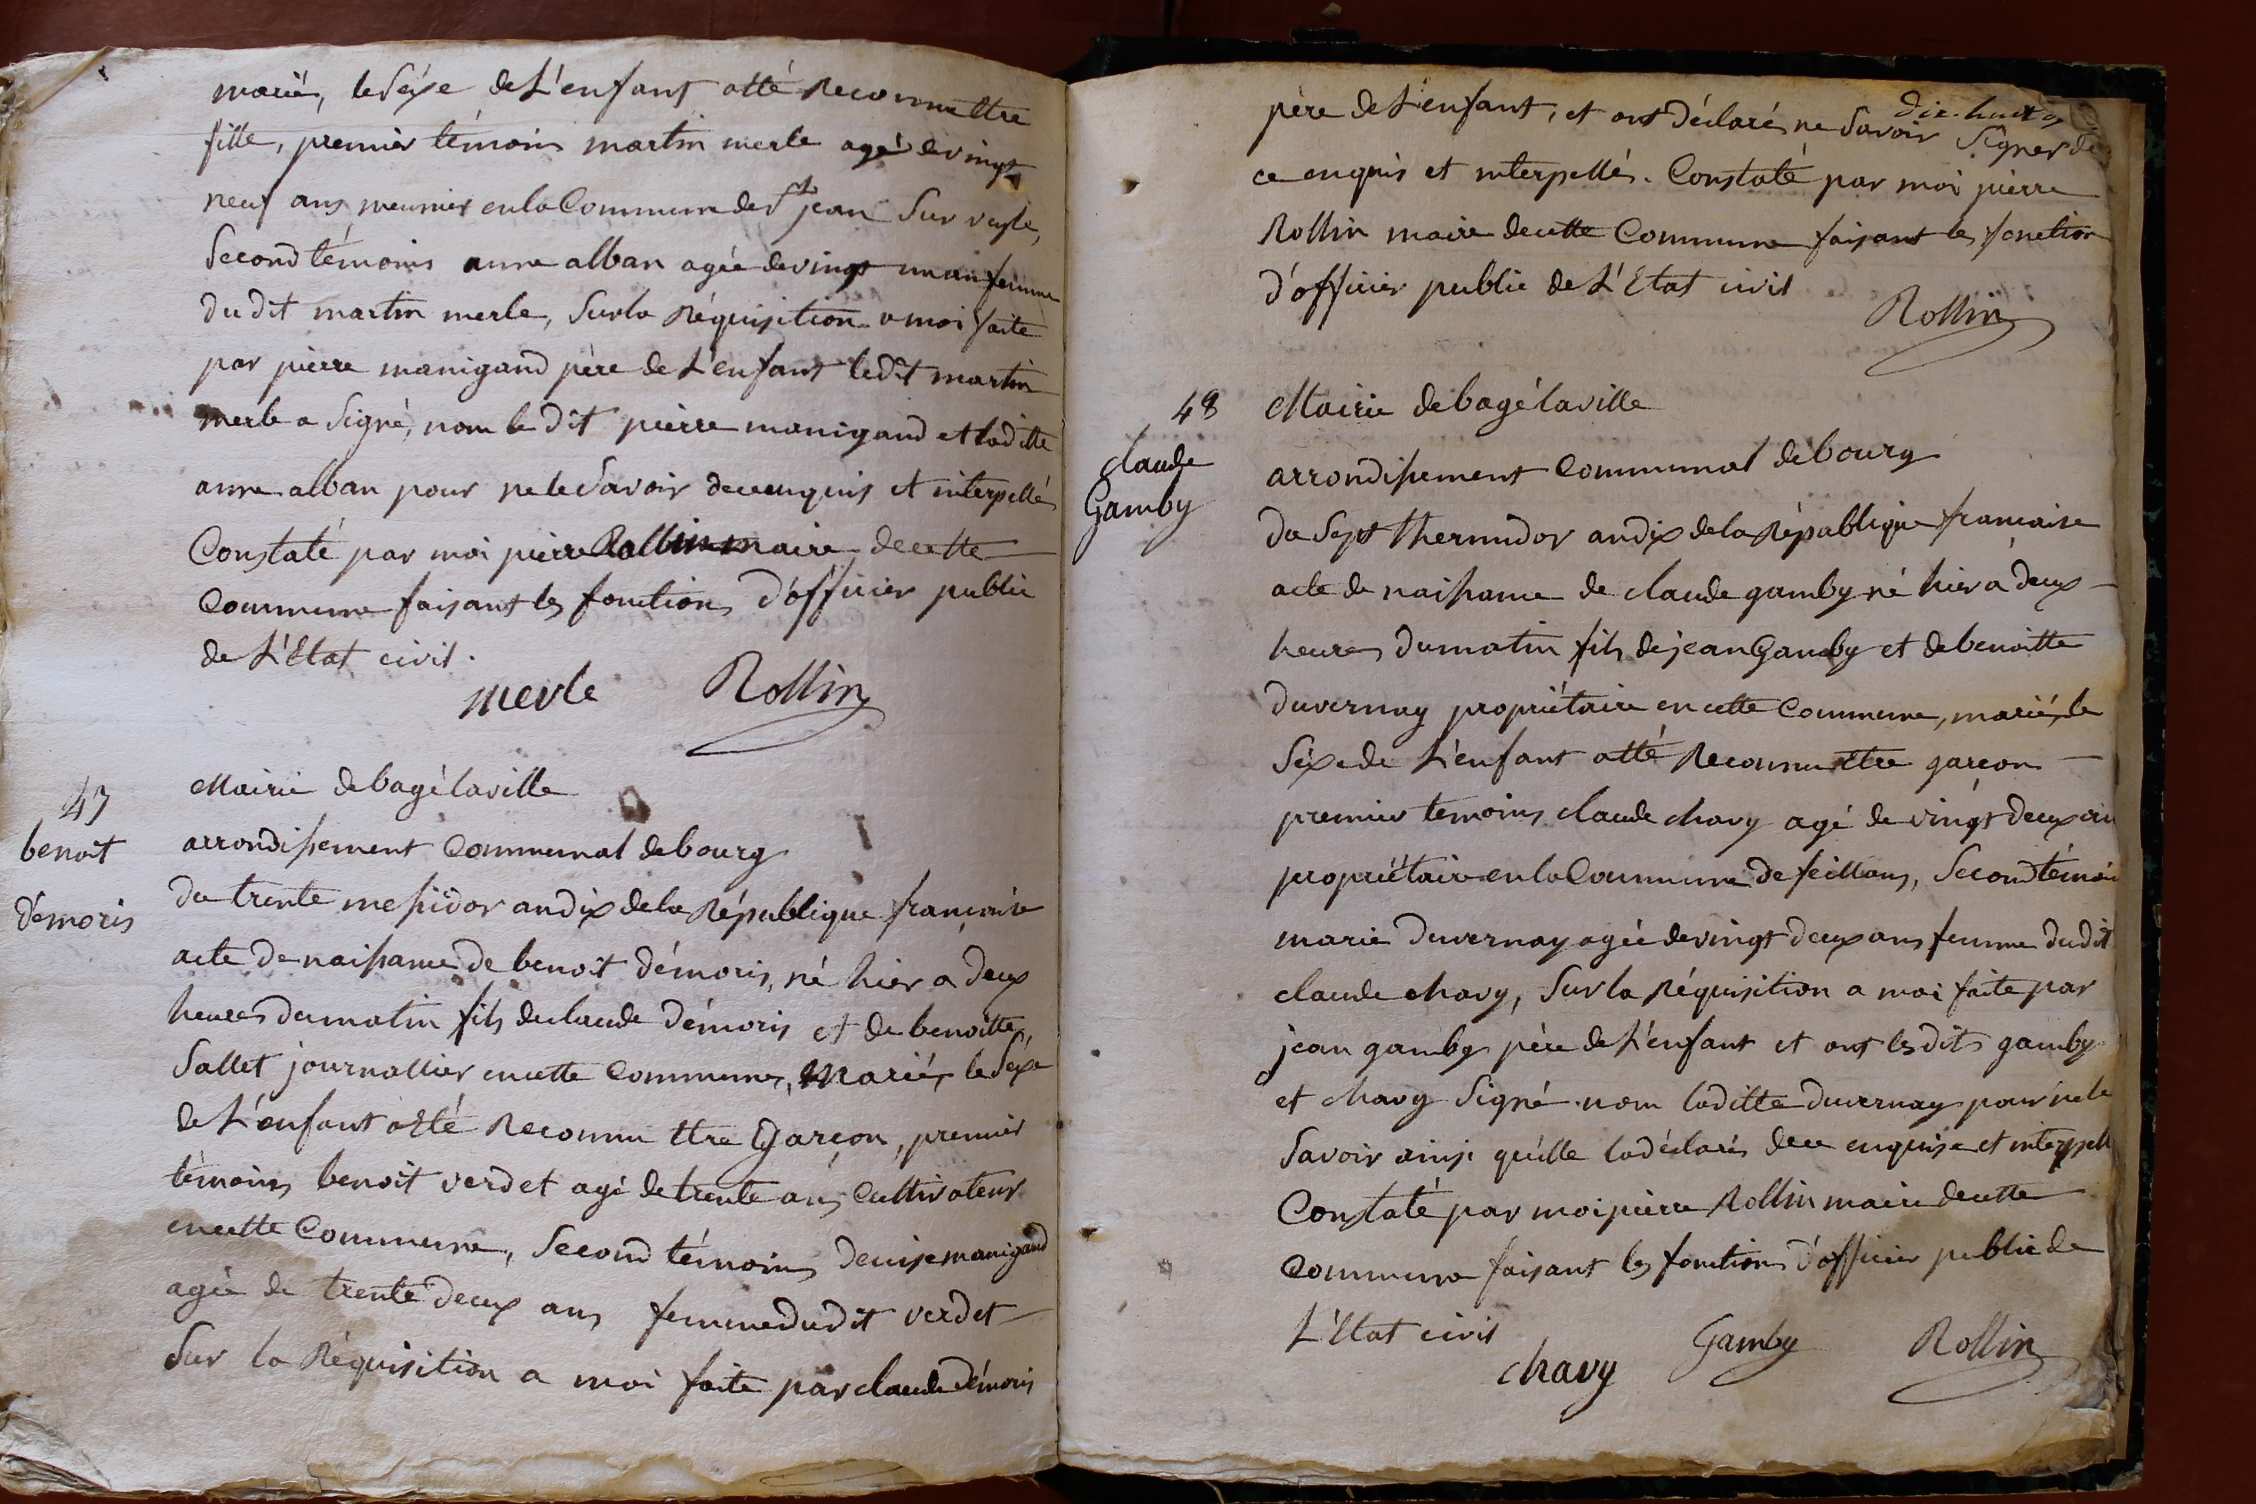 mariés, le séxe de L'enfant atté Reconnu ettre
fille, premier témoins martin merle agé de vingt
neuf ans meunier en la Commune de St jean Sur veyle,
Second témoins anne alban agée de vingt un an femme
du dit martin merle, Sur la Réquisition a moi faite
par pierre manigand père de L'enfant le dit martin
merle a Signé, nom le dit pierre manigand et laditte
anne alban pour ne le Savoir de ce enquis et interpellés
Constaté par moi pierre Rollin maire de cette
Commune faisant les fonctions d'officier public
de L'Etat civil.
merle Rollin
47
benoit
démoris
Mairie de bagé la ville
arrondissement Communal de bourg
du trente messidor an dix de la République française
acte de naissance de benoit démoris, né hier a deux
heures du matin fils de claude démoris et de benoitte
Sallet journallier en cette Commune, Mariés, le Séxe
de L'enfant atté Reconnu ttre Garçon, premier
témoins benoit verdet agé de trente ans Cultivateur
en cette Commune, Second témoins denise manigand
agée de trente deux ans femme du dit verdet
Sur la Réquisition a moi faite par claude démoris
dix-huit
père de L'enfant, et ont déclaré ne Savoir Signer de
ce enquis et interpellés. Constaté par moi pierre
Rollin maire de cette Commune faisant les fonction
d'officier public de L'Etat civil
Rollin
48
claude
Gamby
Mairie de bagé la ville
arrondissement Communal de bourg
du Sept thermidor an dix de la République française
acte de naissance de claude gamby né hier a deux
heures du matin fils de jean Gamby et de benoitte
duvernay propriétaire en cette Commune, mariés, le
Séxe de L'enfant atté Reconnu ettre garçon
premier temoins claude chavy agé de vingt deux an
propriétaire en la Commune de feillans, Second témoin
marie duvernay agée de vingt deux ans femme du dit
claude chavy, Sur la Réquisition a moi faite par
jean gamby père de L'enfant et ont les dits gamby
et chavy Signé nom laditte duvernay pour ne le
Savoir ainsi qu'elle la déclaré de ce enquise et interpell
Constaté par moi pierre Rollin maire de cette
Commune faisant les fonctions d'officier public de
L'Etat civil
chavy Gamby Rollin